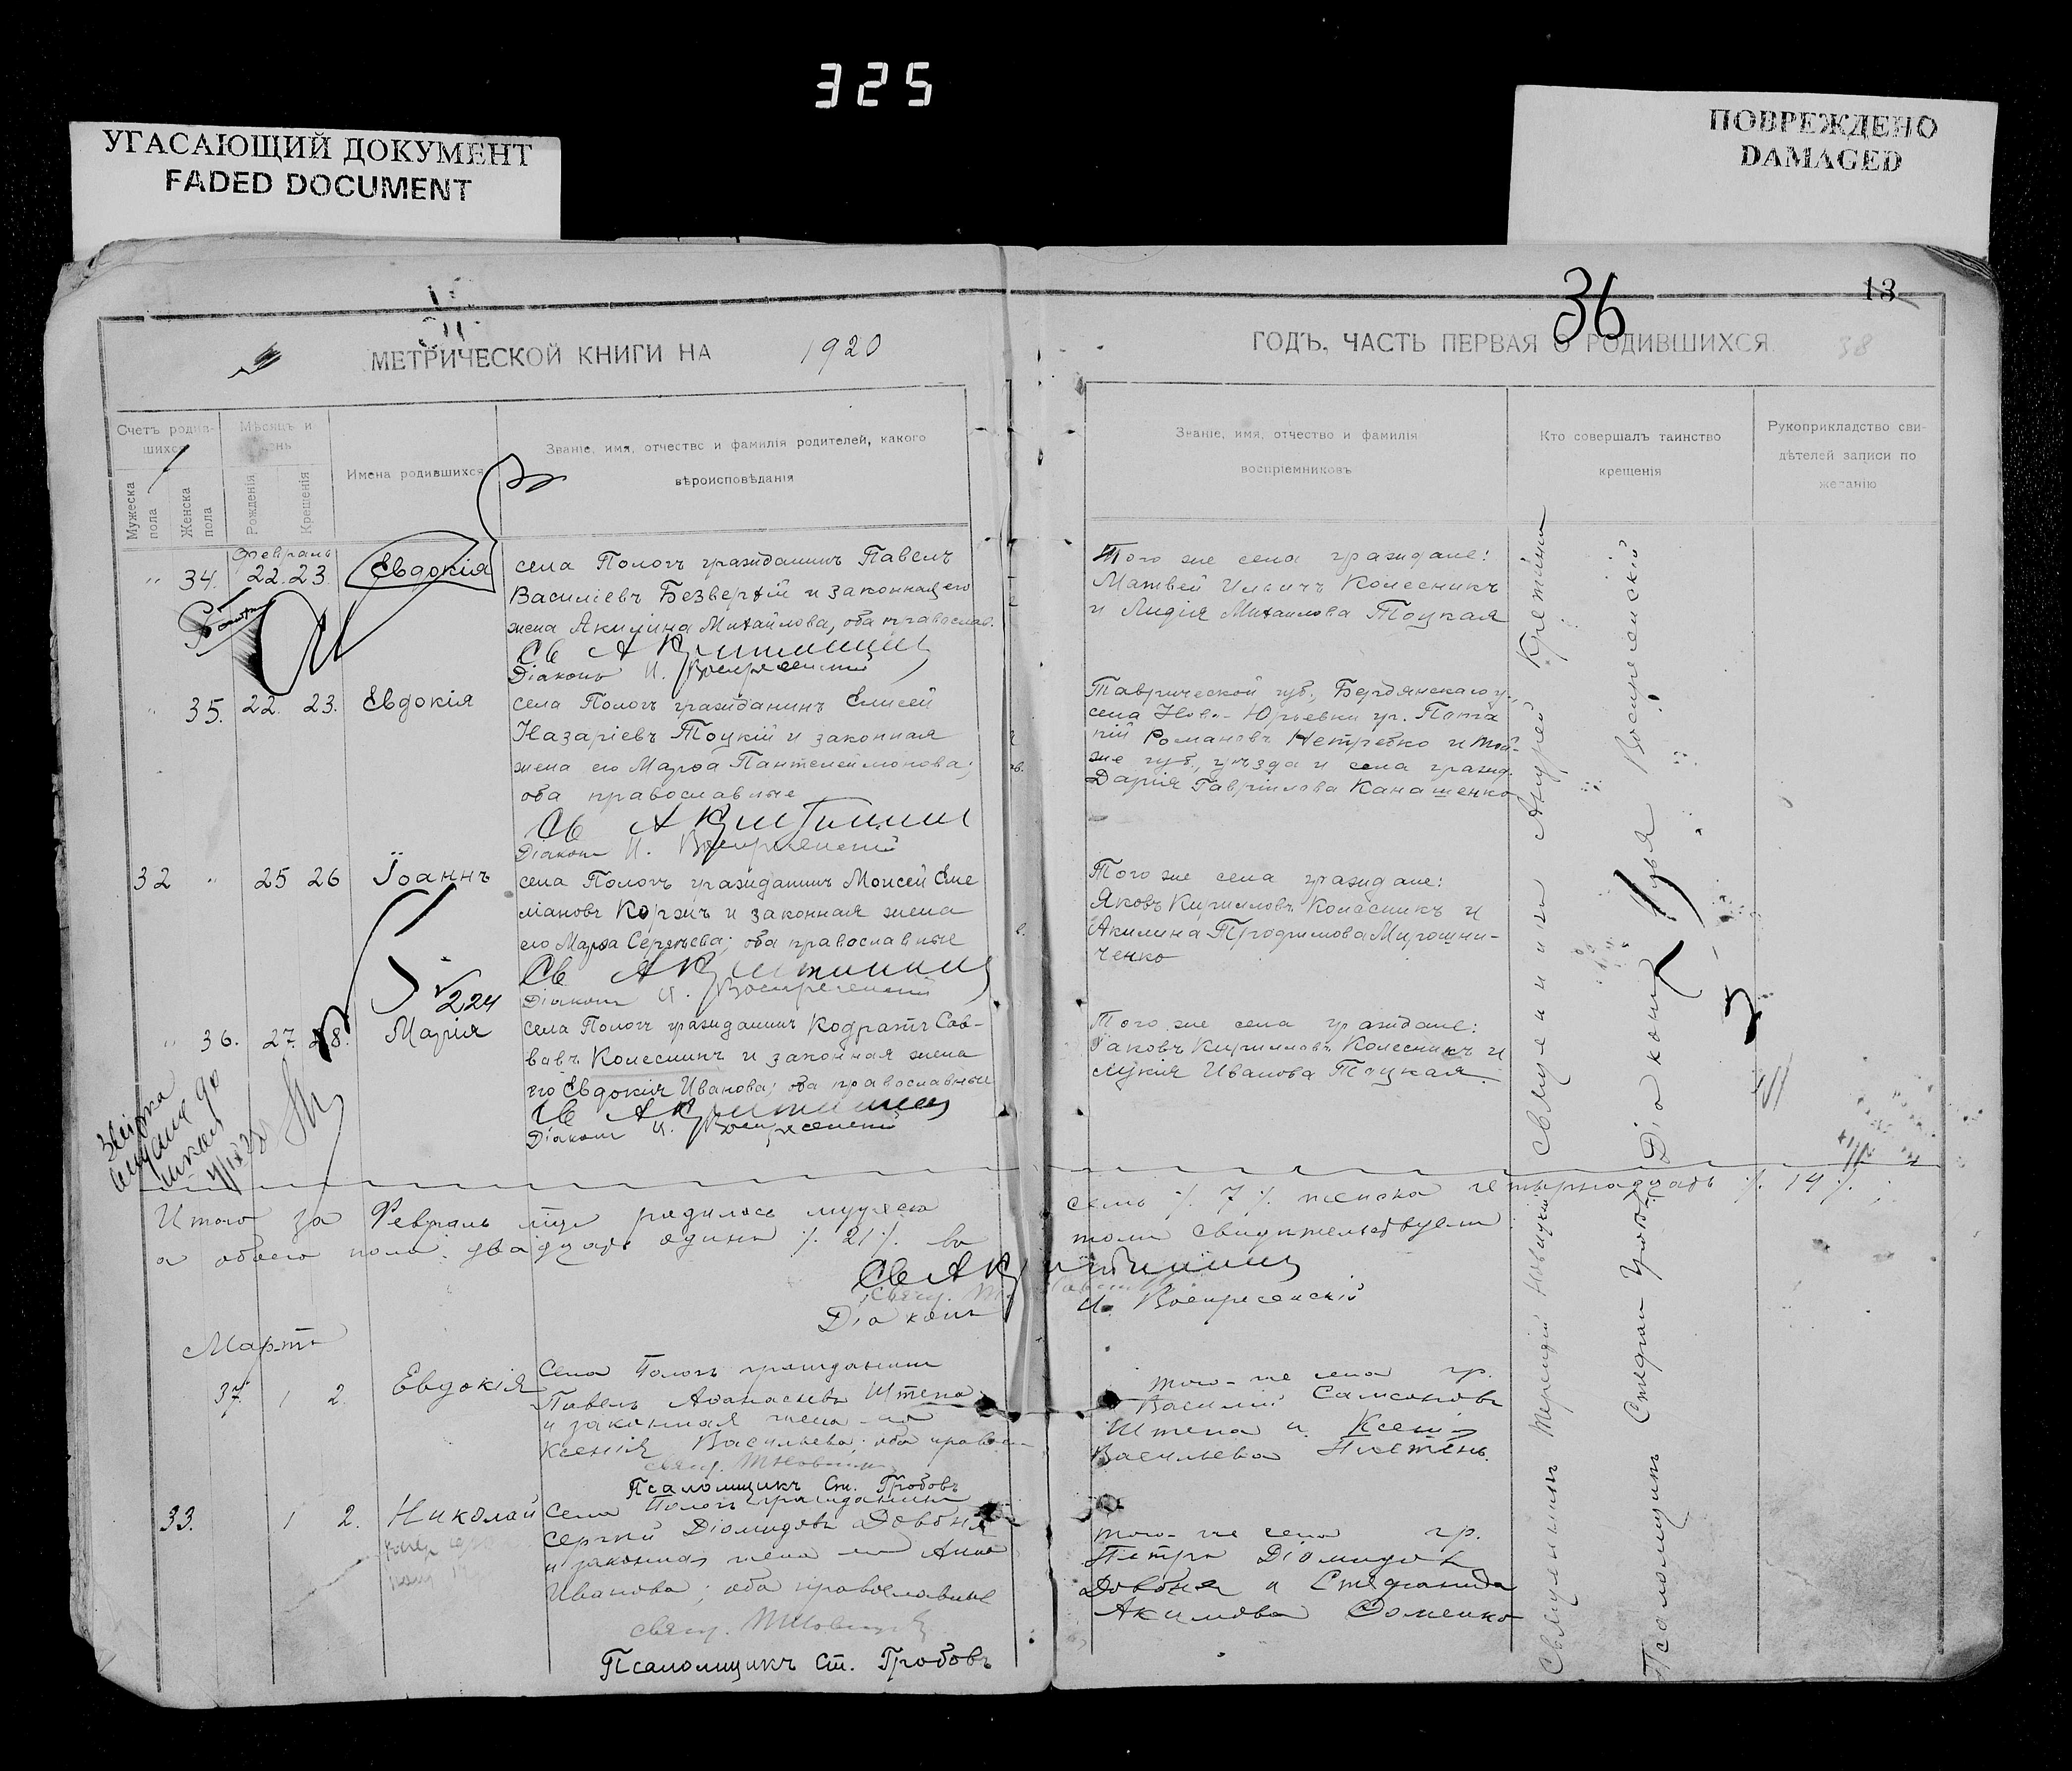 325
УГАСАЮЩИЙ ДОКУМЕНТ
FADED DOCUMENT
ПОВРЕЖДЕНО
DAMAGED
36
13
38
МЕТРИЧЕСКОЙ КНИГИ НА 1920
ГОДЪ, ЧАСТЬ ПЕРВАЯ О РОДИВШИХСЯ
Счетъ родив-
шихся
Мужеска пола
Женска пола
Мѣсяцъ и
день
Рожденія
Крещенія
Имена родившихся
Званіе, имя, отчество и фамилія родителей, какого
вѣроисповѣданія
Званіе, имя, отчество и фамилія
воспріемниковъ
Кто совершалъ таинство
крещенія
Рукоприкладство сви-
дѣтелей записи по
желанію
Февраль
" 34. 22. 23. Евдокія
села Пологъ гражданинъ Павелъ
Василіевъ Безверхій и законная его
жена Акилина Михайлова, оба православ.
Св А
Діаконъ И. Воскресенскій
Того же села граждане:
Матвей Ильичъ Колесникъ
и Лидія Михаилова Тоцкая
" 35. 22. 23. Евдокія
села Пологъ гражданинъ Елисей
Назаріевъ Тоцкій и законная
жена его Марѳа Пантелеймонова;
оба православные
Св А
Діаконъ И. Воскресенскій
Таврической губ., Бердянскаго у.,
села Ново-Юрьевки гр.
Романовъ Нетребко и той-
же губ., уѣзда и села гражд.
Дарія Гавріилова Канашенко
32 " 25 26 Іоаннъ
села Пологъ гражданинъ Моисей Еме
ліановъ Коржъ и законная жена
его Марѳа Сергѣева; оба православные
Св А
Діаконъ И. Воскресенскій
Того же села граждане:
Яковъ Кирилловъ Колесникъ и
Акилина Трофимова Мирошни-
ченко
224
" 36. 27. 28. Марія
села Пологъ гражданинъ Кодратъ Сав-
вавъ Колесникъ и законная жена
его Евдокія Иванова; оба православные
Св А
Діаконъ И. Воскресенскій
Того же села граждане:
Іаковъ Кирилловъ Колесникъ и
Лукія Иванова Тоцкая
Священникъ Андрей
Діаконъ Илья Воскресенскій
Итого за Февраль родилось мужеска
семь ./. 7 ./. женска четырнадцать ./. 14 ./.
а обоего пола двадцать одинъ ./. 21 ./. во
томъ свидѣтельствуемъ
Св А
Діаконъ И. Воскресенскій
Мартъ
37. 1 2. Евдокія
Села Пологъ гражданинъ
Павелъ Аѳанасіевъ Штепа
и законная жена его
Ксенія Васильева; оба правос
свящ. Т Новицкій
Псаломщикъ Ст. Гробовъ
того-же села гр.
Василій Самсоновъ
Штепа и Ксенія
Васильева
33. 1 2. Николай
Села Пологъ гражданинъ
Сергій Діомидовъ Довбня
и законная жена его Анна
Иванова; оба православные
свящ. Т Новицкій
Псаломщикъ Ст. Гробовъ
того-же села гр.
Петръ Діомидовъ
Довбня и Стефанида
Акимова Фоменко
Священникъ Терентій Новицкій
Псаломщикъ Стефанъ Гробовъ